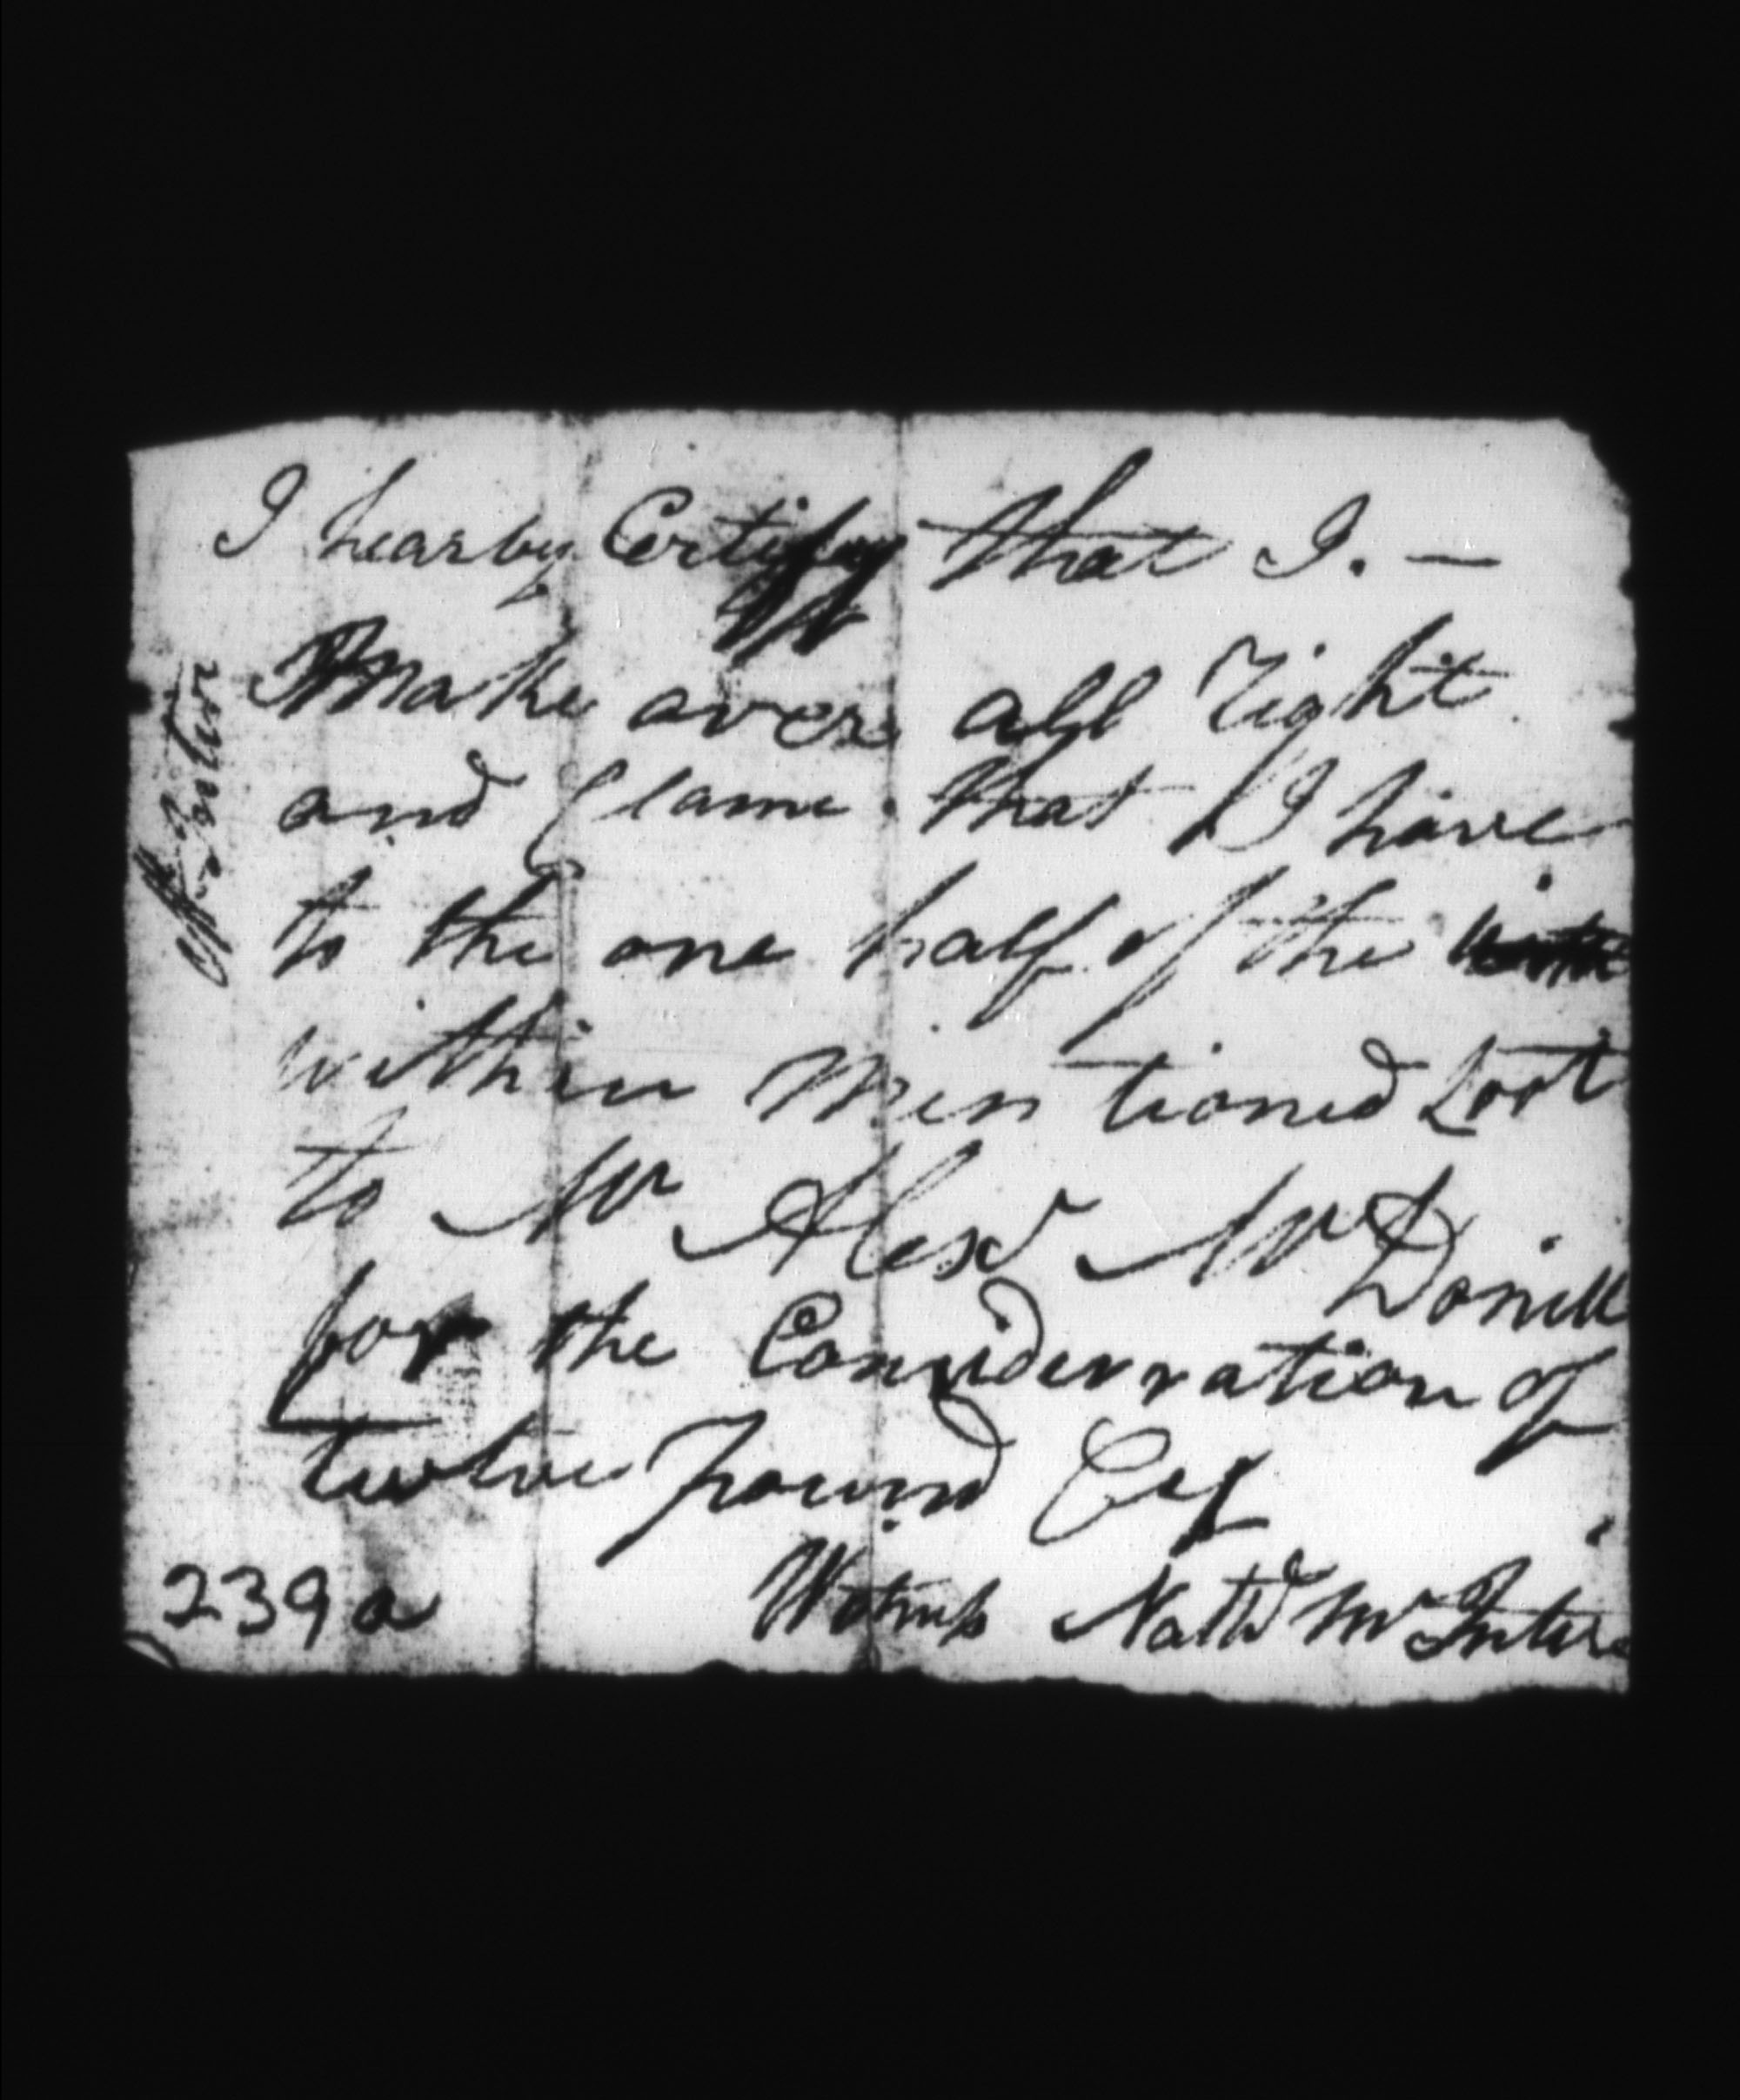 I hearby Certify that I. —
Make over all Right
and Clame that I have
to the one half of the
within Men tioned Lott
to Mr Alexr Mc Donill
for the Considerration of
twelve pound
Witness Nathl McIntire
239a